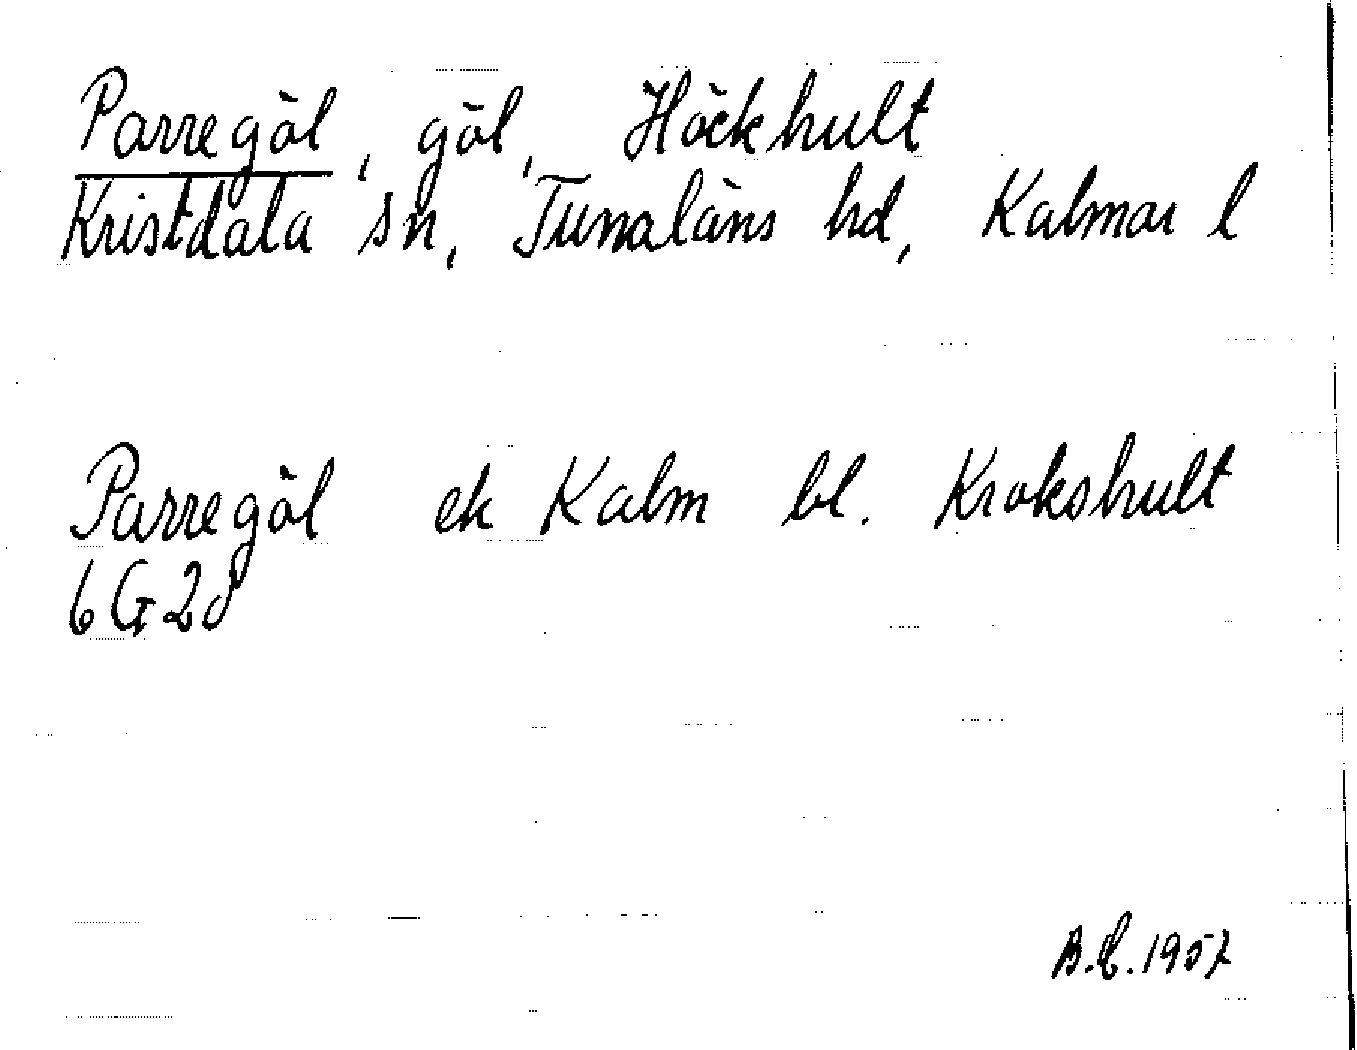 Parregöl, göl, Höckhult
Kristdala sn, Tunaläns hd, Kalmar l
Parregöl ek Kalm bl. Krokshult
6G2d
A.E. 1957